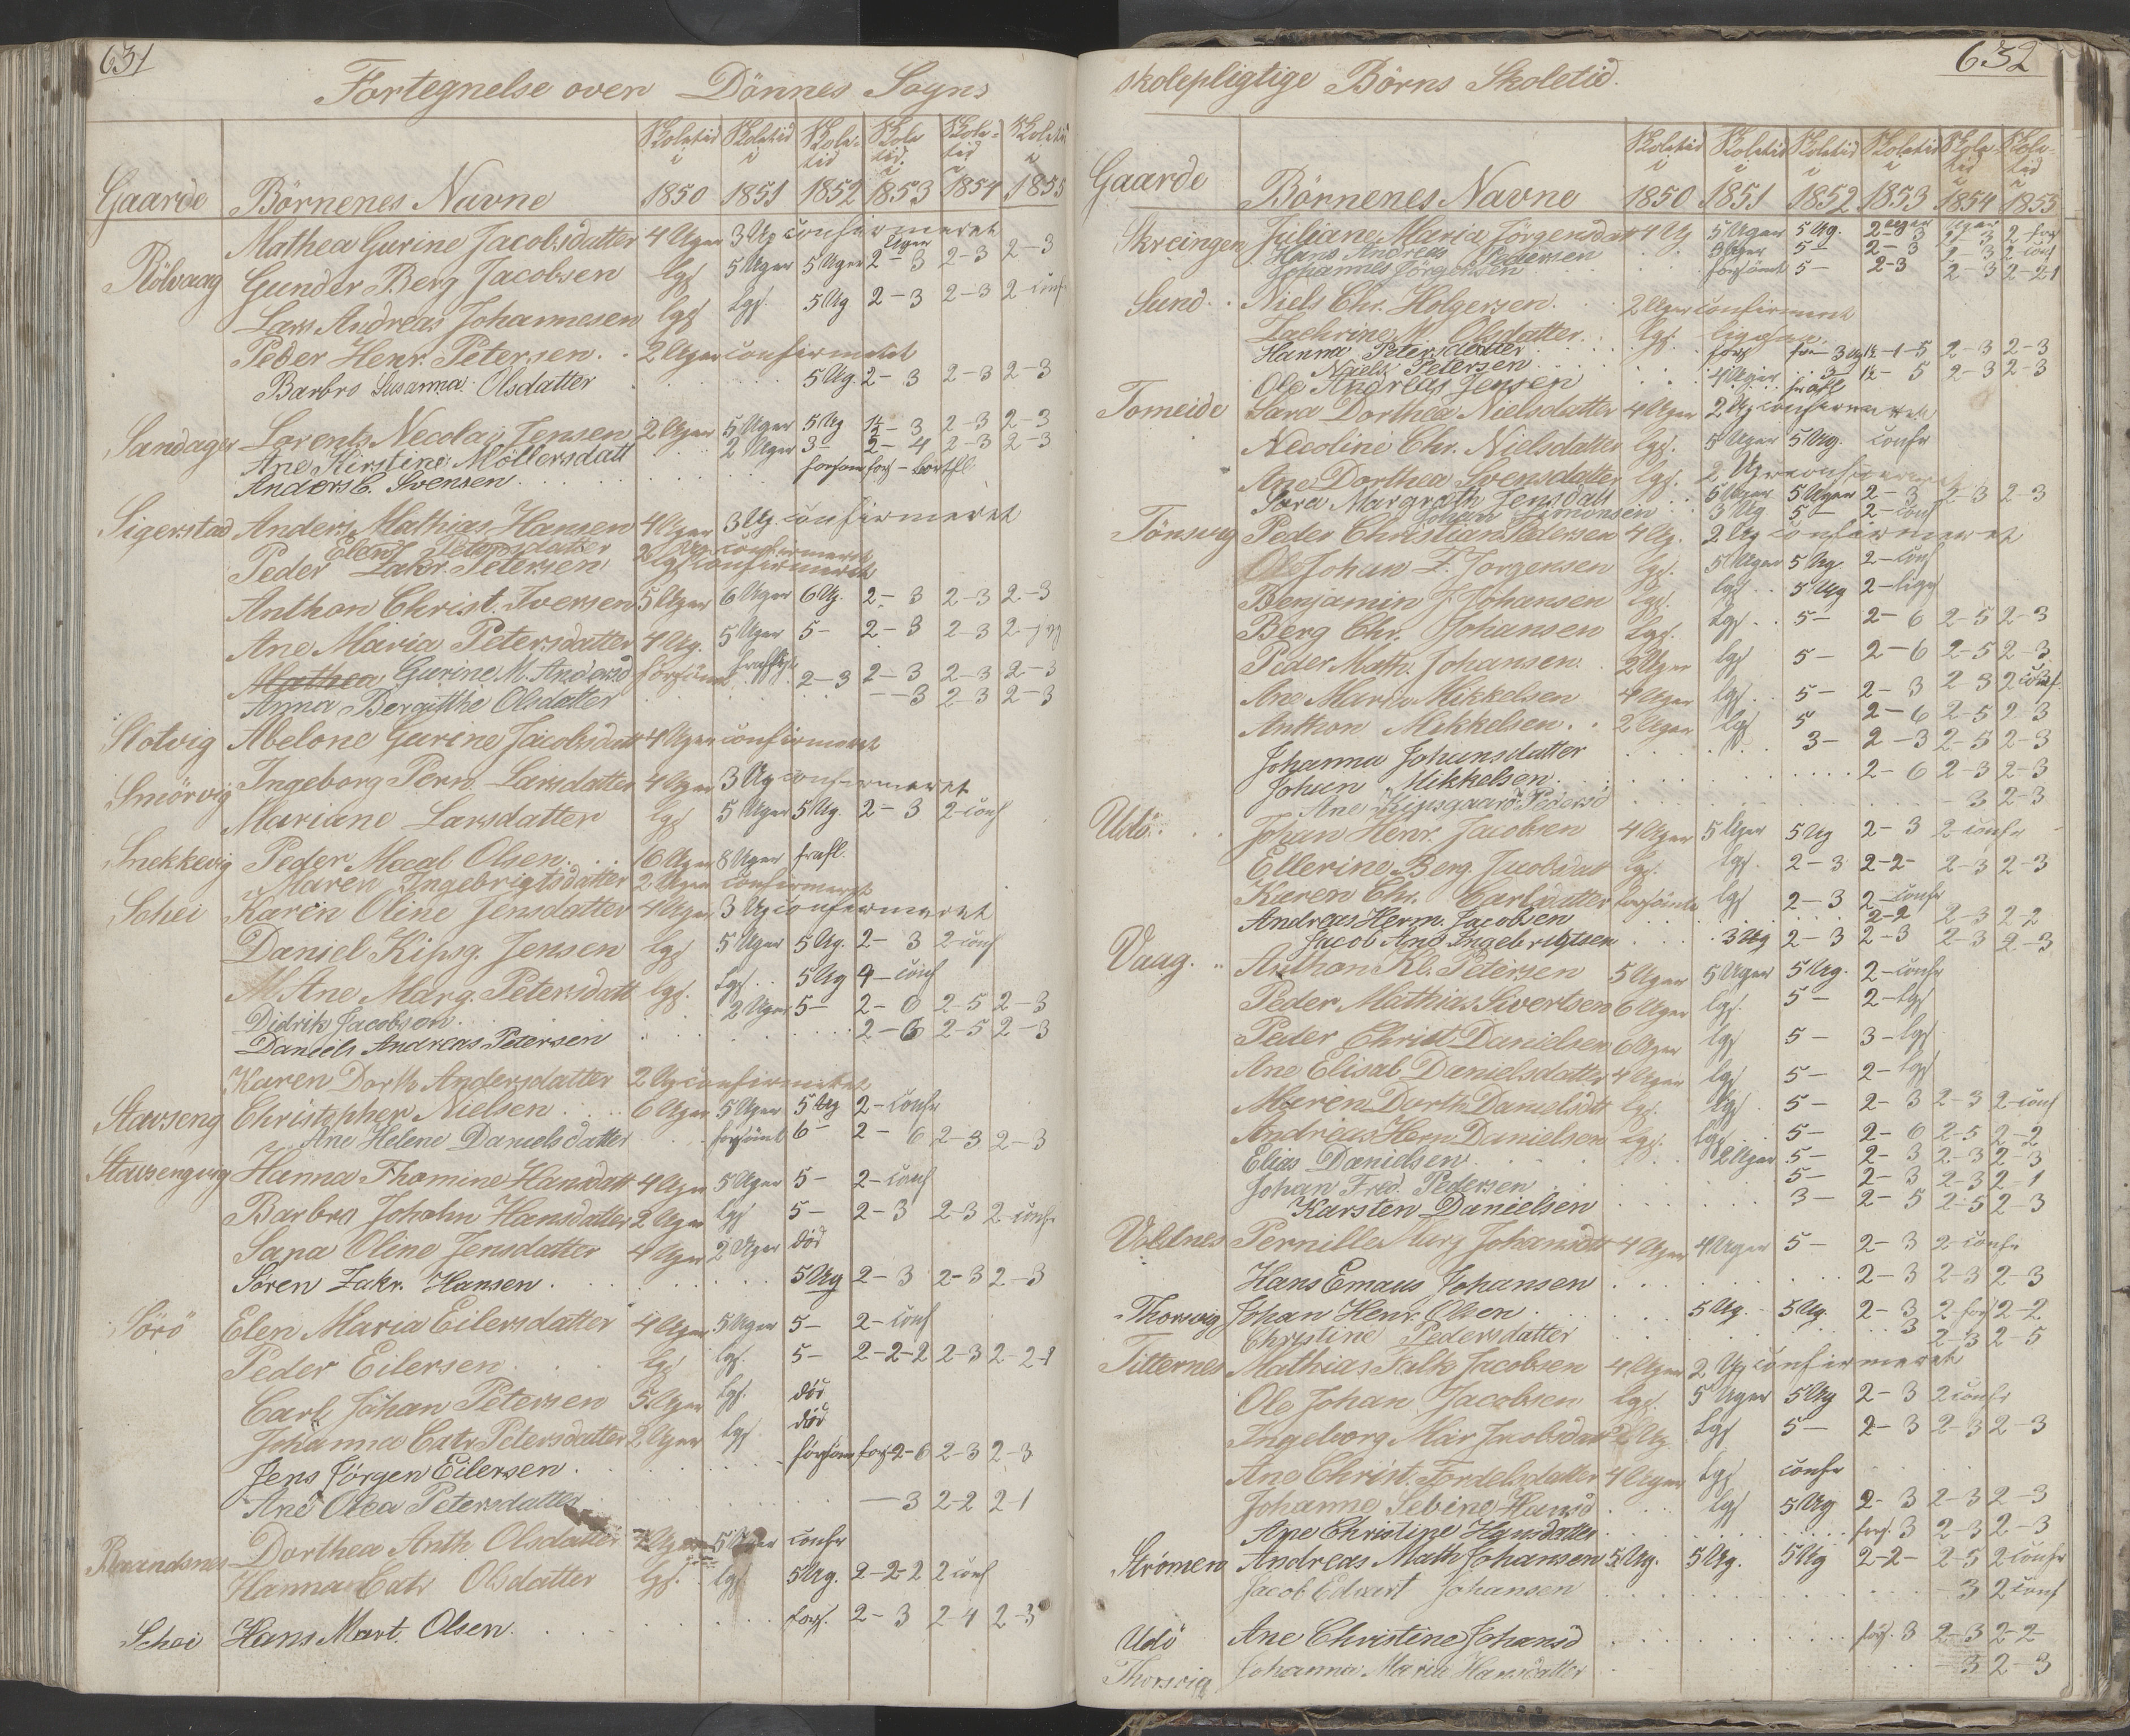 631
Fortegnelse over Dönnes Sogns
Gaarde Börnenes Navne Skoletid i 1850 Skoletid i 1851 Skole-tid i 1852 Skole tid. i 1853 Skole-tid i 1854 Skoletid i 1855
Mathea Gurine Jacobsdatter 4 Uger 3 Ug confirmeret
Rölvaag Gunder Berg Jacobsen lgs 5 Uger 5 Uger 2-3 Uger 2-3 2-3
Lars Andreas Johannesen lgs lgs. 5 Ug 2-3 2-3 2-conf
Peder Henr. Petersen. 2 Uger confirmeret
Barbro Susanna Olsdatter 5 Ug. 2-3 2-3 2-3
Sandager Lorents Necolai Jensen 2 Uger 5 Uger 5 Ug 1½-3 2-3 2-3
Ane Kirstine Möllersdatt 2 Uger 3- 2-4 2-3 2-3
Anders C. Svensen. forsom fors - bortfl.
Sigerstad Anders Mathias Hansen 4 Uger 3 Ug. confirmeret
Elen Petersdatter 2 Ug confirmeret
Peder Zakr. Petersen lgs confirmeret
Anthon Christ. Iversen 5 Uger 6 Uger 6 Ug. 2-3 2-3 2-3
Ane Maria Petersdatter 4 Ug. 5 Uger 5- 2-3 2-3
Mathea Gurine M. Andersd forsömt fraflyt. 2-3 2-3 2-3 2-3
Anna Bergitthe Olsdatter --3 2-3 2-3
Slotvig Abelone Gurine Jacobsdatt 4 Uger confirmeret
Smörvig Ingeborg Pern. Larsdatter 4 Uger 3 Ug confirmeret
Mariane Larsdatter lgs 5 Uger 5 Ug. 2-3 2-conf
Snekkevig Peder Mecal Olsen. 6 Uger 8 Uger frafl.
Maren Ingebrigtsdatter 2 Uger confirmeret
Schei Karen Oline Jensdatter 4 Uger 3 Ug confirmeret
Daniel Kipsg. Jensen lgs 5 Uger 5 Ug. 2-3 2-conf
M. Ane Marg. Petersdatt lgs. lgs. 5 Ug 4-conf
Didrik Jacobsen. 2 Uger 5- 2-6 2-5 2-3
Daniels Andreas Petersen 2-6 2-5 2-3
Karen Dorth Andersdatter 2 Ug confirmeret
Stavseng Christopher Nielsen. 6 Uger 5 Uger 5 Ug 2-confr
Ane Helene Danielsdatter forsömt 6- 2-6 2-3 2-3
Stavsengvig Hanna Thomine Hansdatt 4 Uger 5 Uger 5- 2-conf
Barbra Johahn Hansdatter 2 Uger lgs 5- 2-3 2-3 2-confr
Sara Oline Jensdatter 4 Uger 2 Uger död
Sören Zakr. Hansen. 5 Ug 2-3 2-3 2-3
Sörö Elen Maria Eilersdatter 4 Uger 5 Uger 5- 2-conf
Peder Eilersen. lgs lgs. 5- 2-2-2 2-3 2-2-1
Carl Johan Petersen 5 Uger lgs. död
Johanna Catr. Petersdatter 2 Uger lgs död
Jens Jörgen Eilersen. forsom fors 2-6 2-3 2-3
Ane Olea Petersdatter -3 2-2 2-1
Dorthea Anth Olsdatter 5 Uger confr
Hanna Catr Olsdatter lgs. lgs. 5 Ug. 2-2-2 2 conf
Schei Hans Mart. Olsen. fors. 2-3 2-4 2-3
632
skolepligtige Börns Skoletid.
Gaarde Börnenes Navne Skoletid i 1850 Skoletid i 1851 Skoletid i 1852 Skoletid i 1853 Skole tid i 1854 Skole-tid i 1855
Skreingen Juliane Maria Jörgensdatt 4 Ug 5 Uger 5 Ug. 2-3 Uger 2-3 Uger 2-fors
Hans Andreas Pedersen 3 Uger 5- 2-3 2-3 2 conf
Johannes Jörgensen forsömt 5- 2-3 2-3 2-2-1
Sund Niels Chr. Holgersen. 2 Uger confirmeret
Zachrine M. Olsdatter. lgs.
Hanna Petersdatter fors 2-3 2-3
Niels Petersen
Ole Andreas Jensen 4 Uger 1½-5 2-3 2-3
Tomeide Sara Dorthea Nielsdatter 4 Uger 2 Ug confirmeret
Necoline Chr. Nielsdatter lgs. 5 Uger 5 Ug. confr
Ane Dorthea Svensdatter lgs. 2 Uger confirmeret
Sara Margrath Jensdatt 6 Uger 5 Uger 2-3 2-3 2-3
Johan Simonsen 3 Ug 5- 2-conf
Tönsvig Peder Christian Pedersen 4 Ug. 2 Ug confirmeret
Ole Johan Z. Jörgensen lgs. 5 Uger 5 Ug 2-conf
Benjamin J. Johansen lgs. lgs. 5 Ug 2-lige
Berg Chr. Johansen lgs. lgs. 5- 2-6 2-5 2-3
Peder Math. Johansen. 2 Uger lgs 5- 2-6 2-5 2-3
Ane Maria Mikkelsen 4 Uger lgs. 5- 2-3 2-3 2 conf.
Anthon Mikkelsen. 2 Uger lgs 5 2-6 2-5 2-3
Johanna Johansdatter 3- 2-3 2-5 2-3
Johan Mikkelsen. 2-6 2-3 2-3
Ane Kipsgaard Pedersd -3 2-3
Udö. Johan Henr. Jacobsen 4 Uger 5 Uger 5 Ug 2-3 2-confr
Ellerine Berg. Jacobsdatt lgs. lgs. 2-3 2-2- 2-3 2-3
Karen Chr. Carlsdatter forsömte lgs 2-3 2-confr
Andreas Herm. Jacobsen 2-2 2-3 2-2
Jacob And Ingebrigtsen 3 Ug 2-3 2-3 2-3 2-3
Vaag. Anthon Kl. Petersen 5 Uger 5 Uger 5 Ug. 2-confr
Peder Mathias Sivertsen 6 Uger lgs. 5- 2-lgs
Peder Christ Danielsen 6 Uger lgs 5- 3-lgs
Ane Elisab Danielsdatter 4 Uger lgs 5- 2-lgs
Maren Dorth Danielsdtt lgs. lgs 5- 2-3 2-3 2-conf
Andreas Herm. Danielsen lgs. lgs 5- 2-6 2-5 2-2
Elias Danielsen. 2 Uger 5- 2-3 2-3 2-3
Johan Fred. Pedersen 5- 2-3 2-3 2-1
Karsten Danielsen 3- 2-5 2-5 2-3
Voldnes Pernille Marg Johansdatt 4 Uger 4 Uger 5- 2-3 2-confr
Hans Emaus Johansen 2-3 2-3 2-3
Thorsvig Johan Henr. Olsen. 5 Ug. 5 Ug. 2-3 2 fors 2-2
Christine Pedersdatter 3 2-3 2-5
Titternes Mathias Falk Jacobsen 4 Uger 2 Ug confirmeret
Ole Johan Jacobsen lgs. 5 Uger 5 Ug 2-3 2 confr
Ingeborg Mar Jacobsdatt 2 Ug. lgs 5- 2-3 2-3 2-3
Ane Christ. Fordelsdatter 4 Uger lgs confr
Johanne Sevine Hansd lgs 5 Ug 2-3 2-3 2-3
Ane Christine Hansdatter fors. 3 2-3 2-3
Strömen Andreas Math Johansen 5 Ug. 5 Ug. 5 Ug 2-2- 2-5 2 confr
Jacob Edvart Johansen -3 2 conf
Udö Ane Christine Johansd fors. 3 2-3 2-2-
Thorsvig Johanna Maria Hansdatter -3 2-3